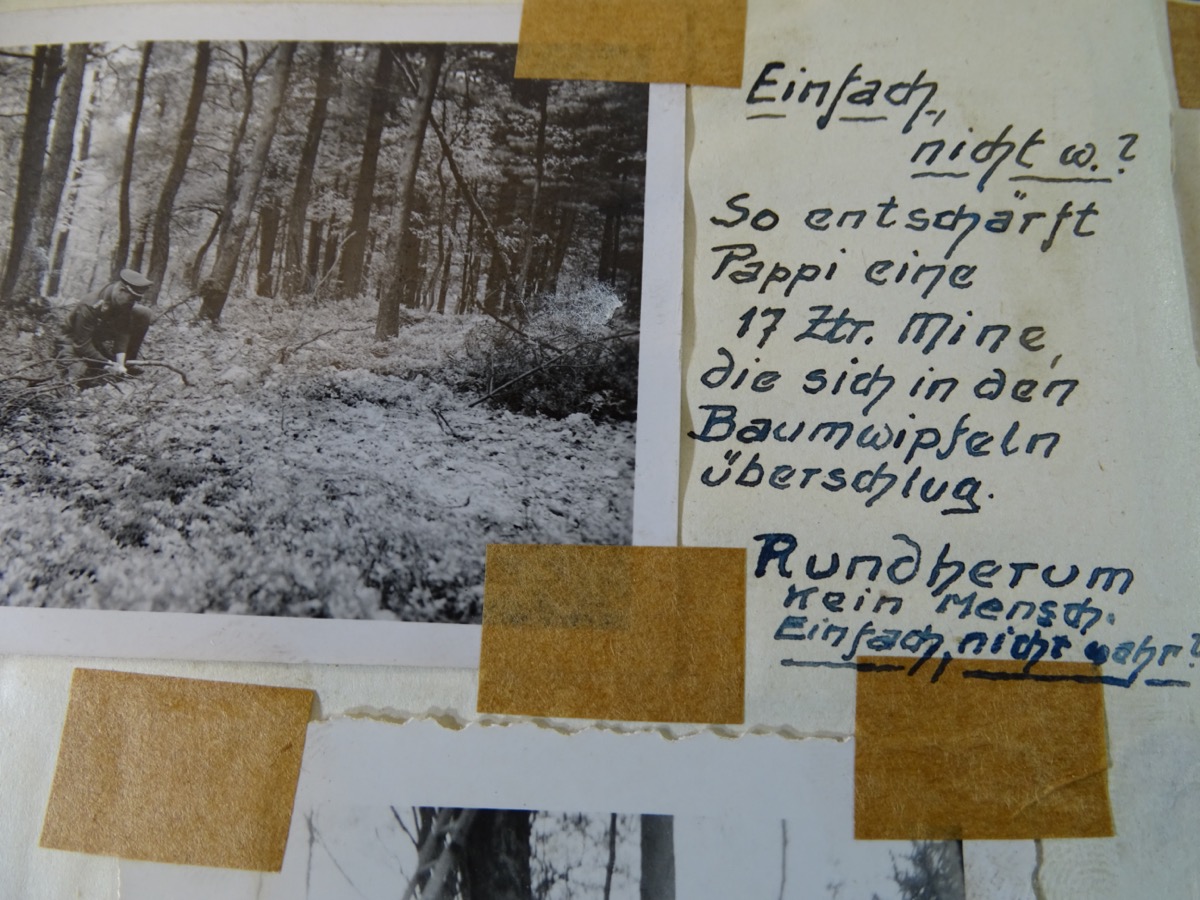 Einfach,
nicht w.?
So entschärft
Pappi eine
17 Ztr. Mine,
die sich in den
Baumwipfeln
überschlug.
Rundherum
kein Mensch.
Einfach, nicht wahr?